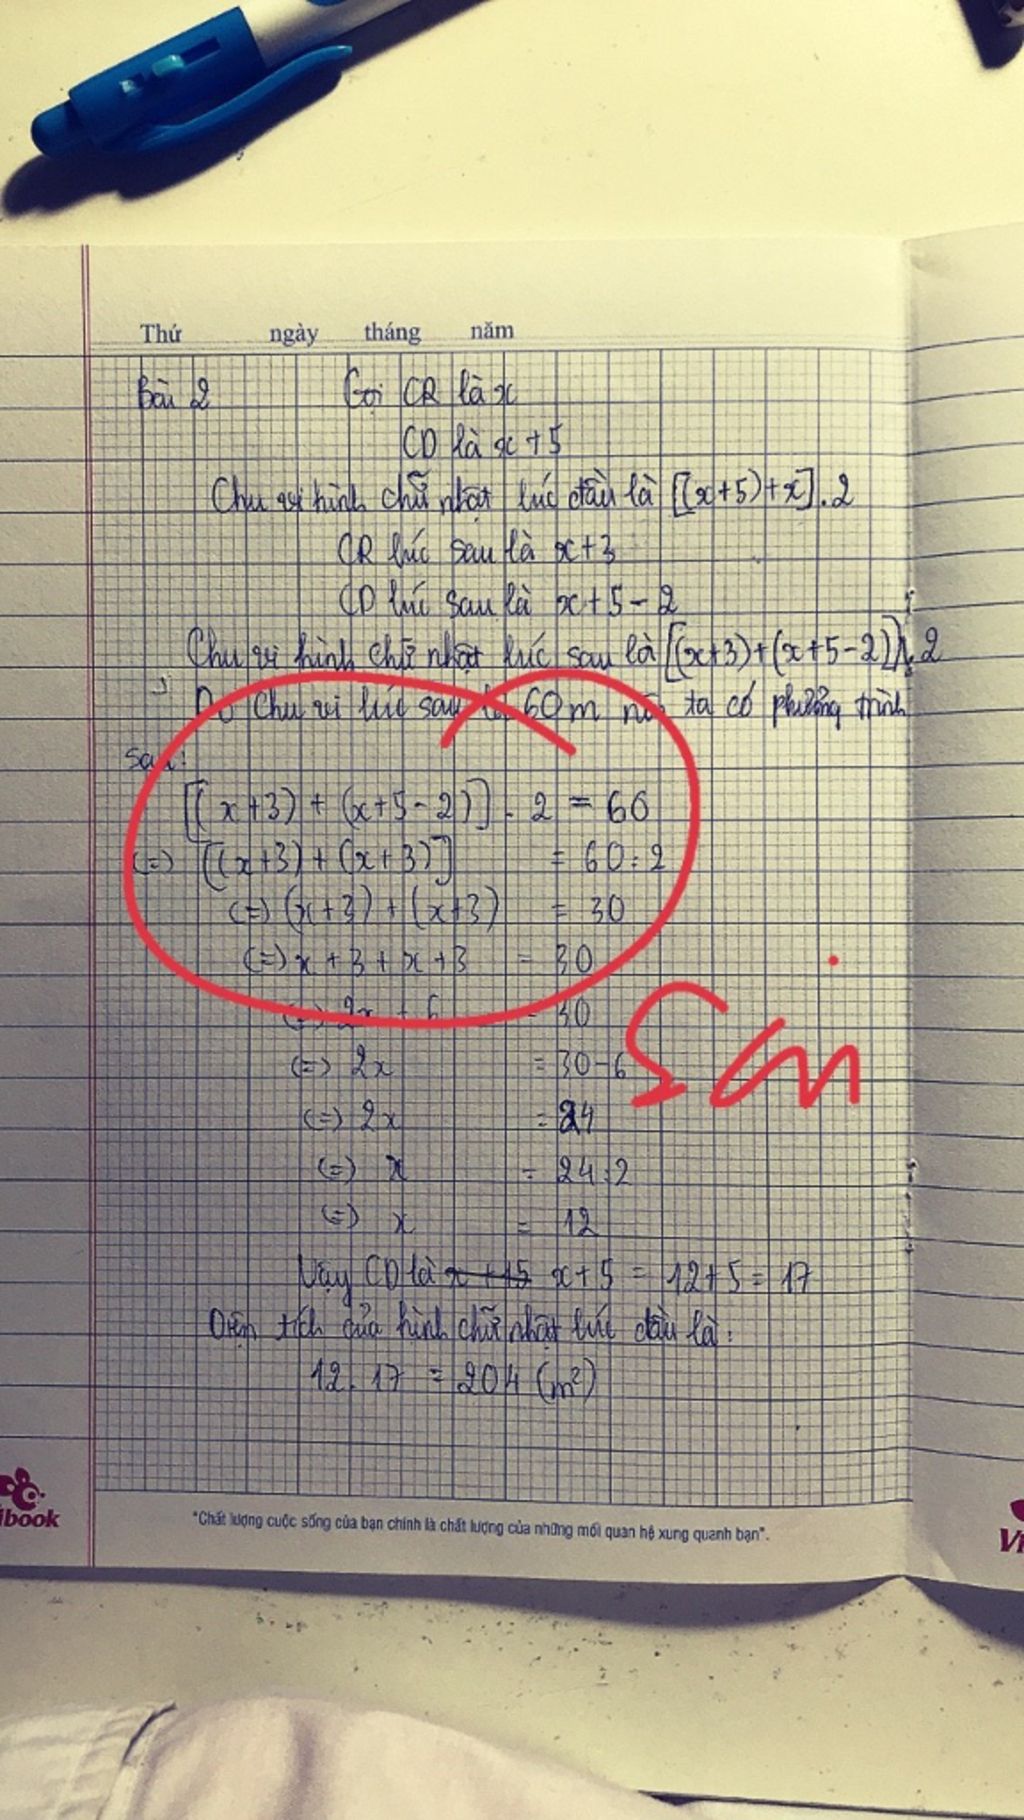 Thứ ngày tháng năm
Bài 2 Gọi CR là x
CD là x + 5
Chu vi hình chữ nhật lúc đầu là [(x+5)+x].2
CR lúc sau là x+3
CD lúc sau là x+5-2
Chu vi hình chữ nhật lúc sau là [(x+3)+(x+5-2)].2
Do Chu vi lúc sau là 60m nên ta có phương trình
sau:
[(x+3) + (x+5-2)] . 2 = 60
(=) [(x+3) + (x+3)] = 60:2
(=) (x+3) + (x+3) = 30
(=) x + 3 + x + 3 = 30
(=) 2x + 6 = 30
(=) 2x = 30-6
(=) 2x = 24
(=) x = 24:2
(=) x = 12
Vậy CD là x + 15 x + 5 = 12 + 5 = 17
Diện tích của hình chữ nhật lúc đầu là:
12 . 17 = 204 (m²)
"Chất lượng cuộc sống của bạn chính là chất lượng của những mối quan hệ xung quanh bạn".
ibook